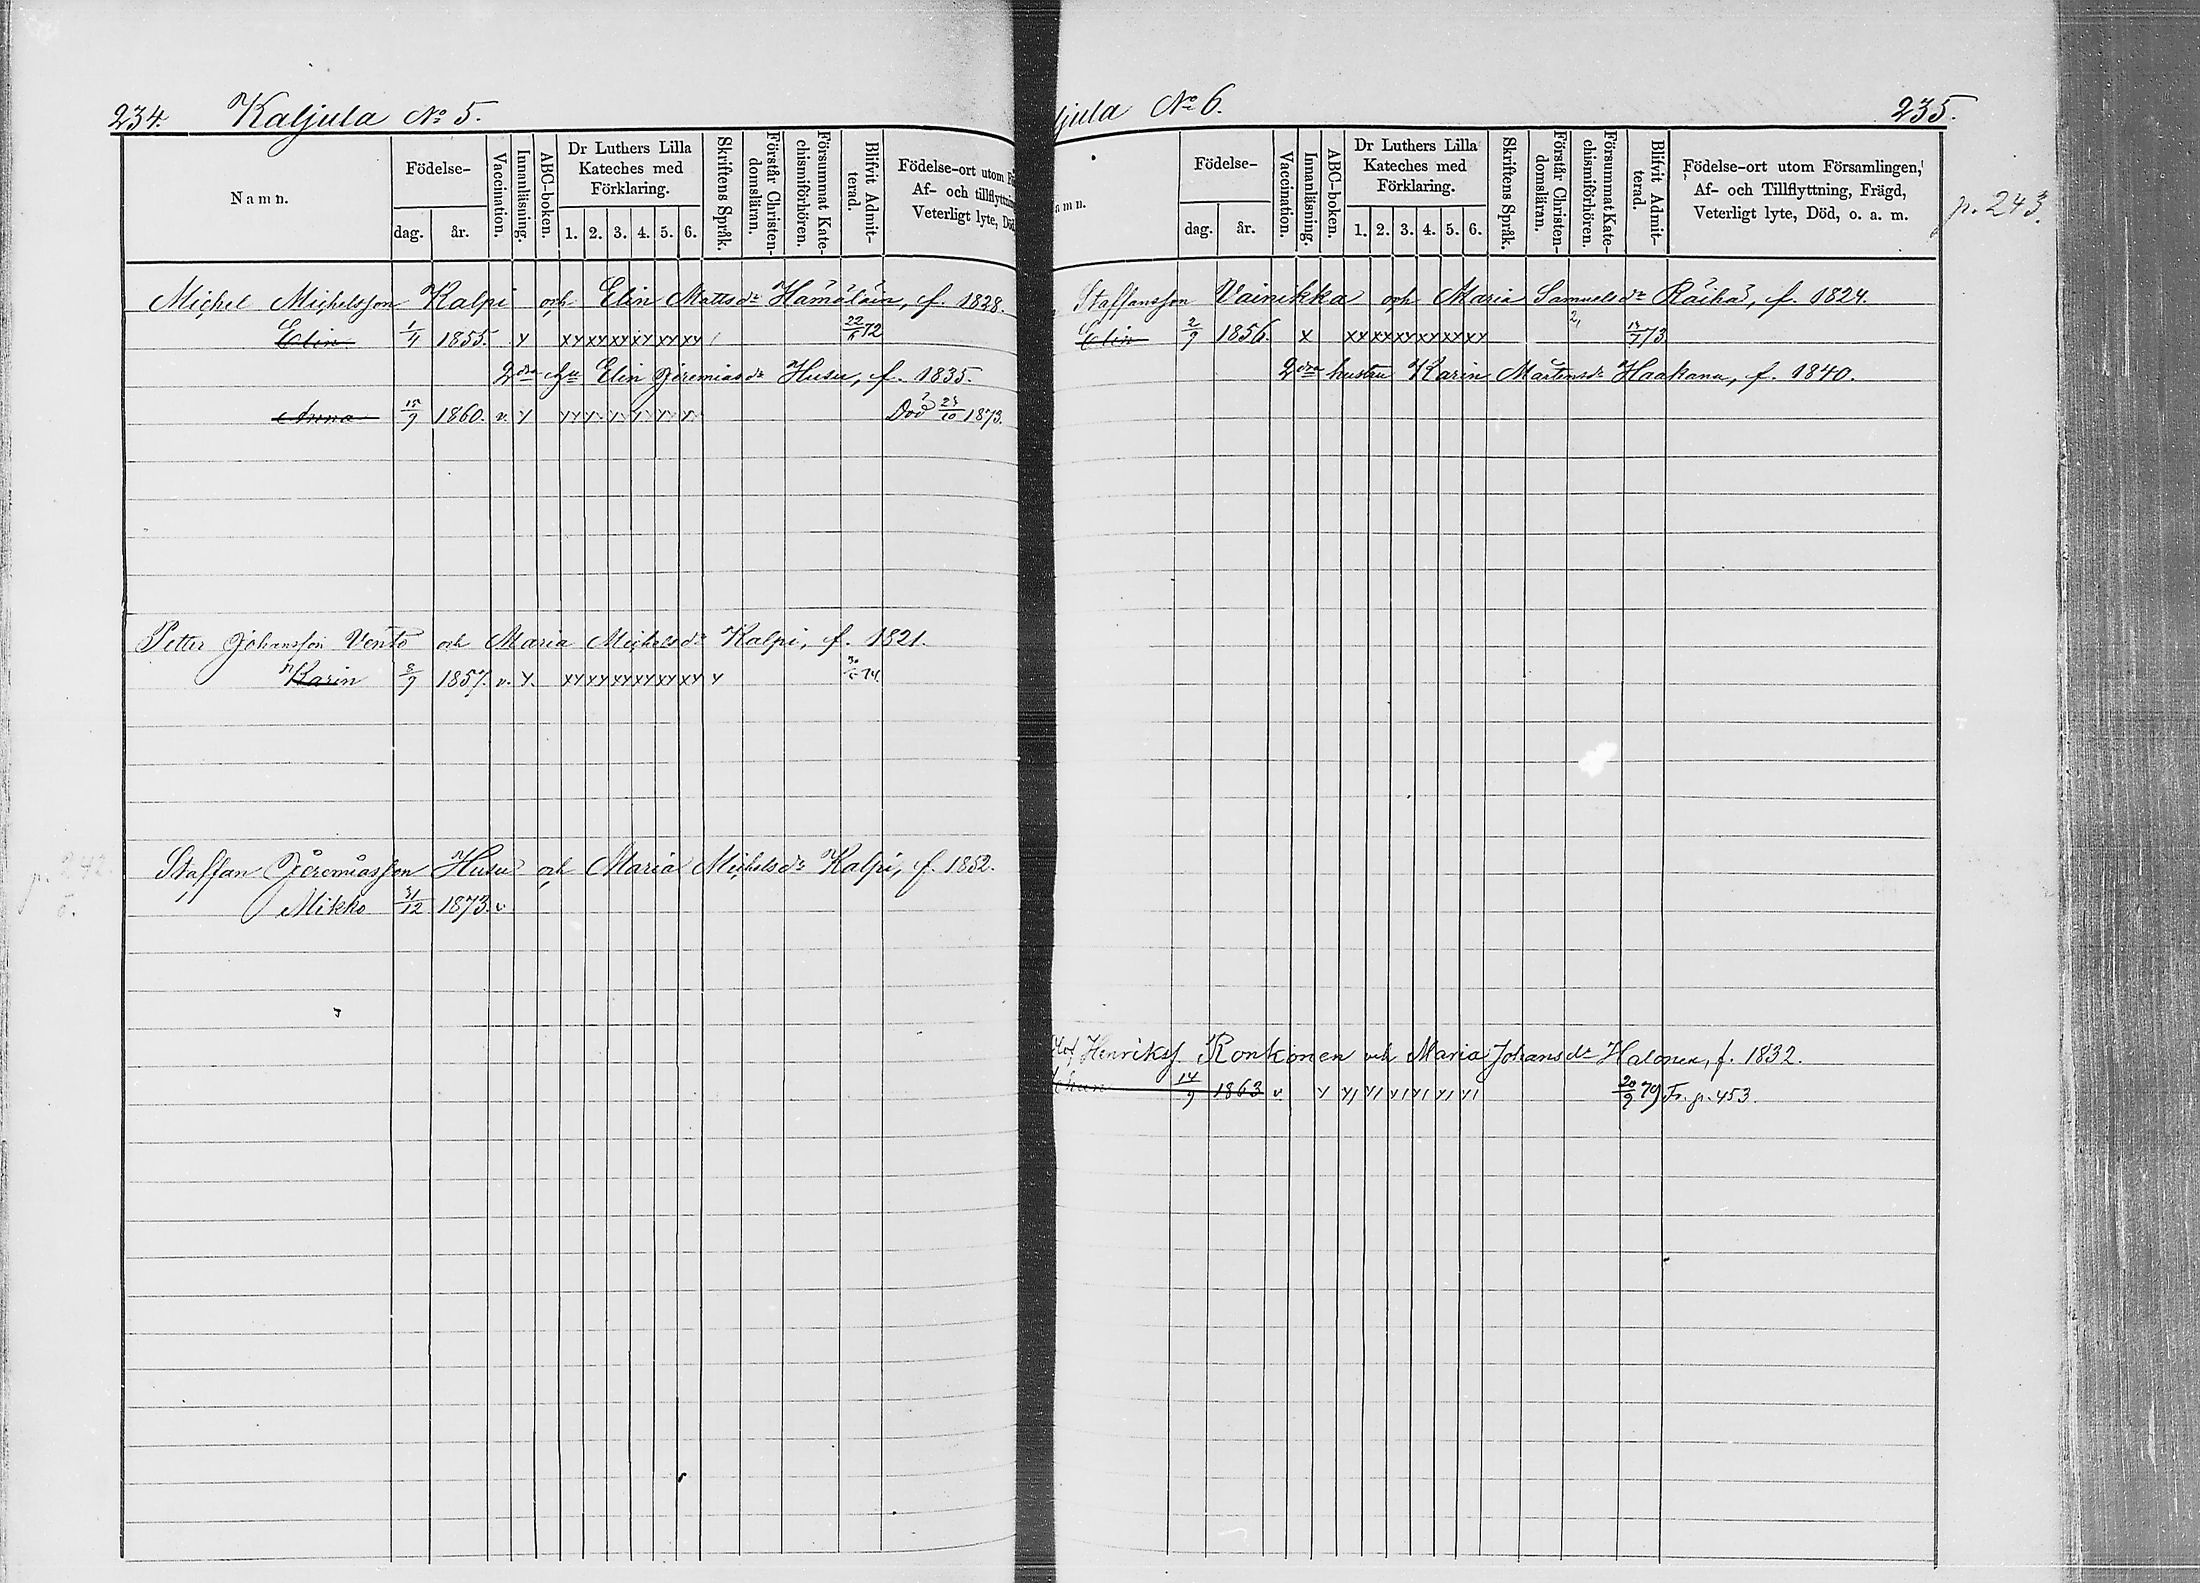 234. Kaljula No 5.
Namn.
Födelse-
dag. år.
Vaccination.
Innanläsning.
ABC-boken.
Dr Luthers Lilla
Kateches med
Förklaring.
1. 2. 3. 4. 5. 6.
Skriftens Språk.
Förstår Christen-
domsläran.
Försummat Kate-
chismiförhören.
Blifvit Admit-
terad.
Födelse-ort utom
Af- och tillflyttning
Veterligt lyte, Död
Michel Michelsson Kalpi och Elin Mattsdr Hämäläin, f. 1828.
Elin 1/4 1855. x xx xx xx xx xx xx 72
2dra Elin Jeremiasdr Husu, f. 1835.
Anna 15/9 1860. v. x x x x x x x Död 23/10 1873.
Petter Johansson Vento och Maria Michelsdr Kalpi, f. 1821.
Karin 8/9 1857. v. x. xx xx xx xx xx xx x 74.
Staffan Jeremiasson Husu och Maria Michelsdr Kalpi, f. 1852.
Mikko 31/12 1873. v.
p. 242
jula No 6. 235.
amn.
Födelse-
dag. år.
Vaccination.
Innanläsning.
ABC-boken.
Dr Luthers Lilla
Kateches med
Förklaring.
1. 2. 3. 4. 5. 6.
Skriftens Språk.
Förstår Christen-
domsläran.
Försummat Kate-
chismiförhören.
Blifvit Admit-
terad.
Födelse-ort utom Församlingen,
Af- och Tillflyttning, Frägd,
Veterligt lyte, Död, o. a. m.
p. 243.
Staffansson Vainikka och Maria Samuelsdr Räihä, f. 1824.
Elin 2/9 1856. x xx xx xx xx xx xx 73
2dra hustru Karin Mårtensdr Haakana, f. 1840.
Henriks. Ronkonen och Maria Johansdr Halonen, f. 1832.
14/9 1863 v x 20/9 79 Fr. p. 453.